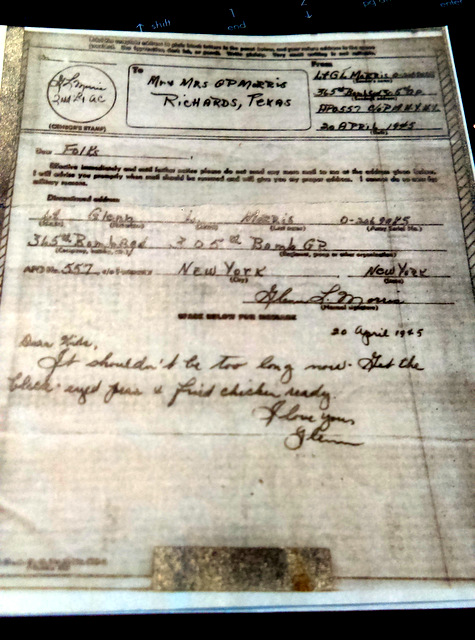 ↑ shift
1
end
2
↓
enter
Print the complete address in plain block letters in the panel below, and your return address in the space
To
Mr & Mrs G P Morris
Richards, Texas
From
Lt G L Morris
APO 557
20 April 1945
(Date)
G L Morris
2nd Lt AC
(CENSOR'S STAMP)
Dear Folks
Effective immediately and until further notice please do not send any more mail to me at the address given below.
I will advise you promptly when mail should be resumed and will give you my proper address. I cannot do so now for
military reasons.
Discontinued address
Lt Glenn L. Morris
(Last name) (Army Serial No.)
365th Bomb Sqd 305th Bomb GP
APO No. 557, c/o Postmaster New York New York
(City) (State)
Glenn L. Morris
(Normal signature)
SPACE BELOW FOR MESSAGE
20 April 1945
Dear Kids,
It shouldn't be too long now. Get the
black-eyed peas & fried chicken ready.
I love you,
Glenn